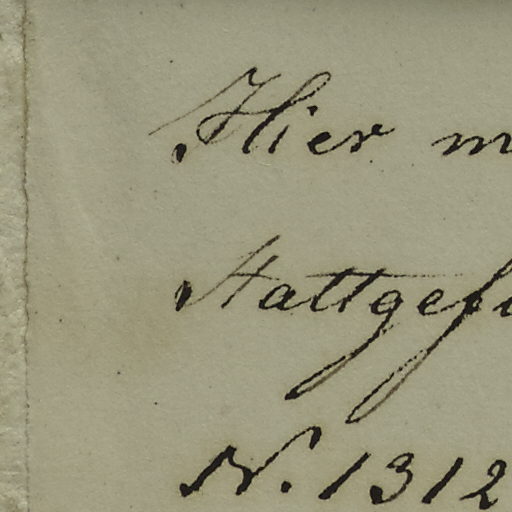 Hier m
Stattgef
N. 1312